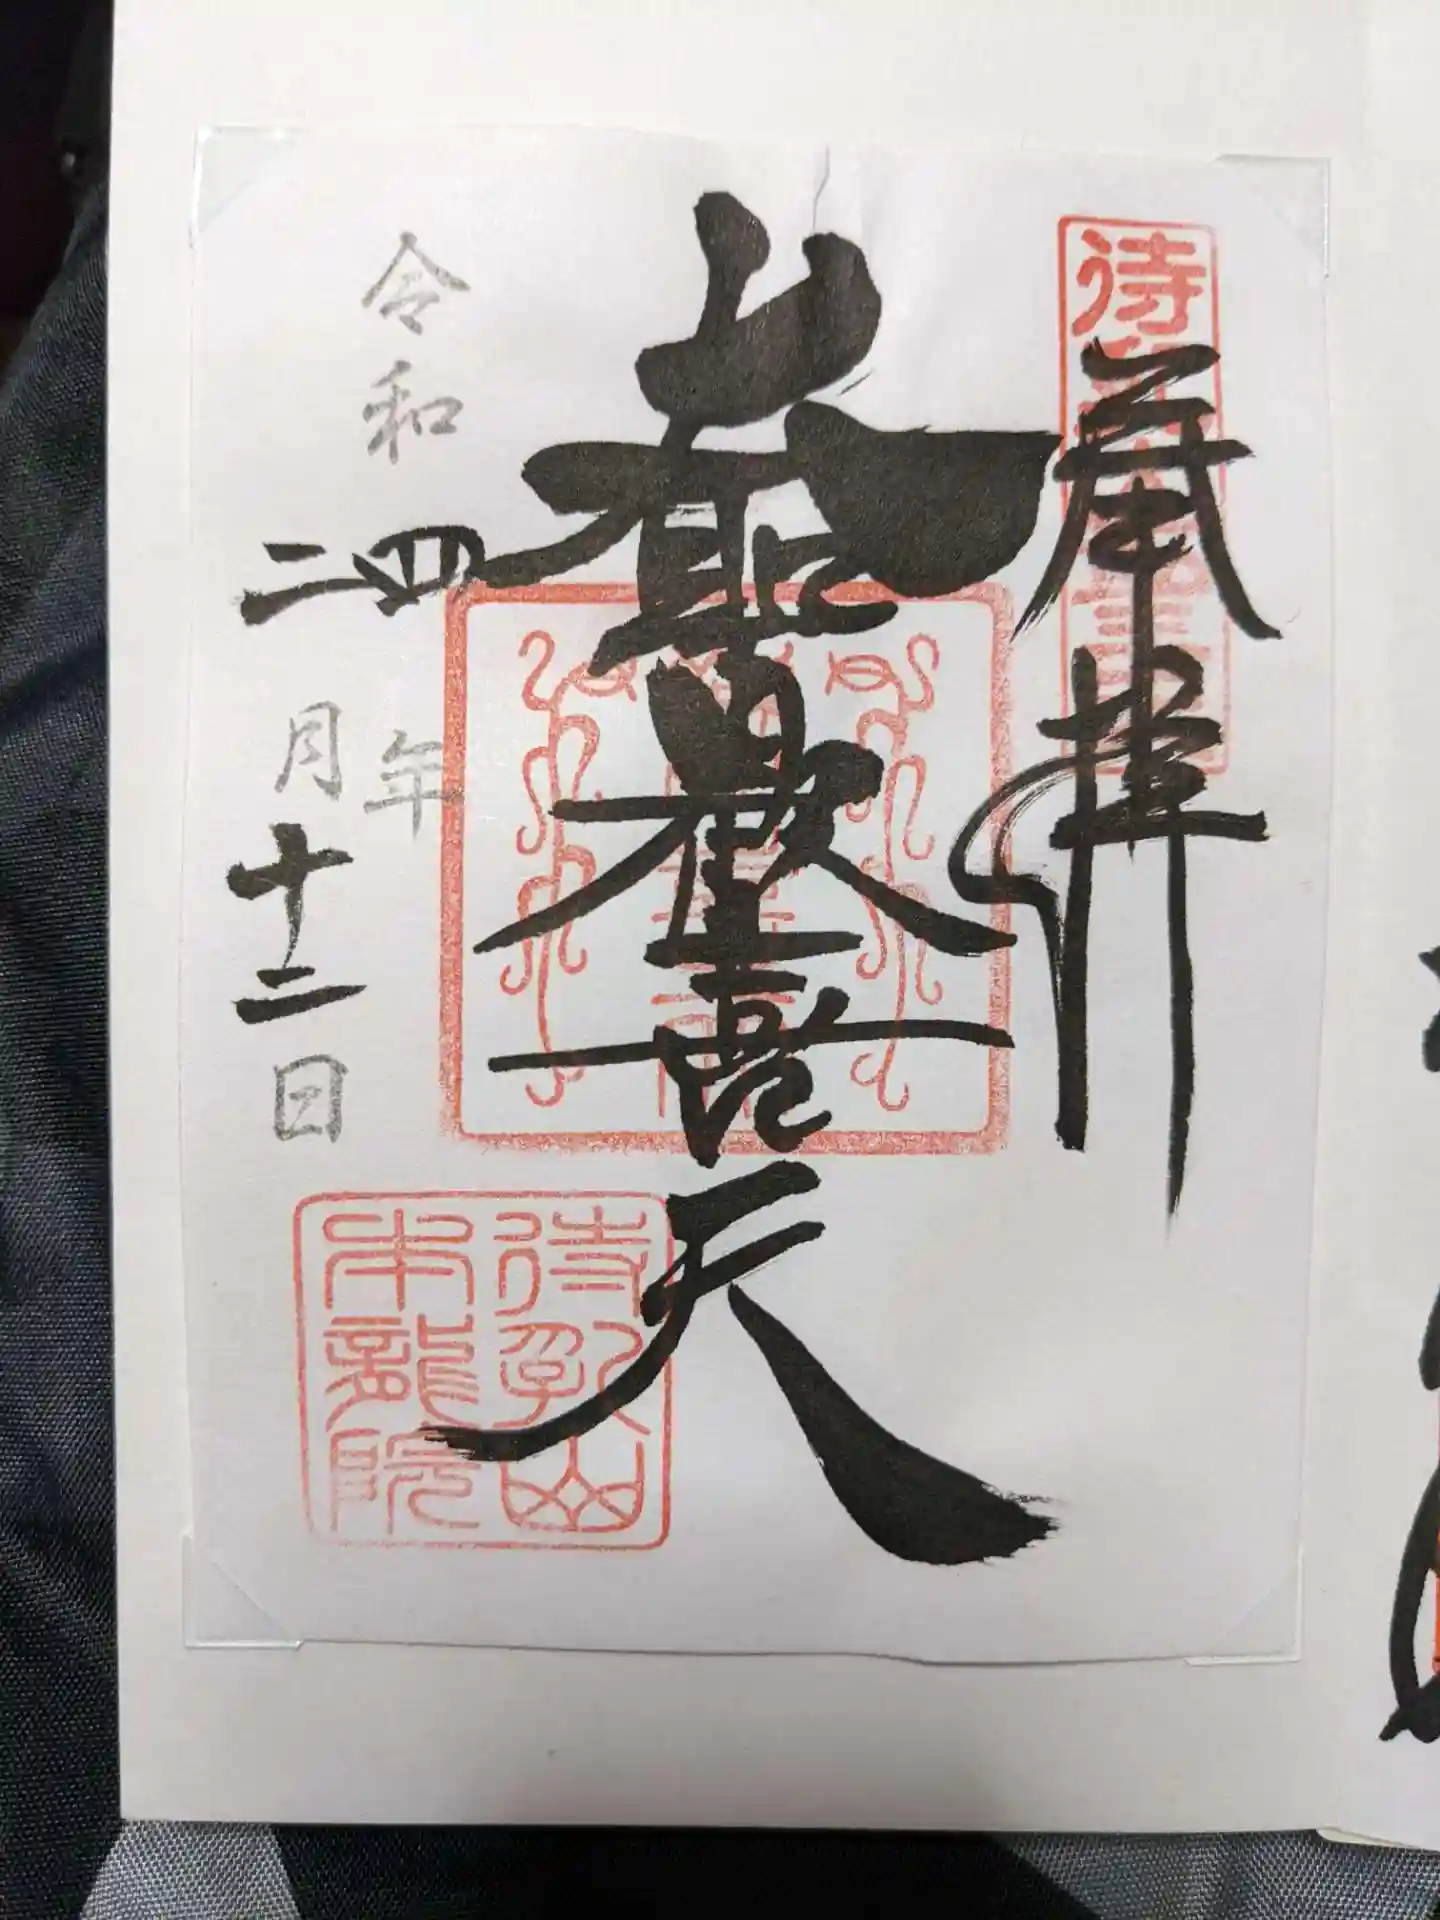 奉拝
大聖歓喜天
令和四年
二月十二日
待乳山
本龍院